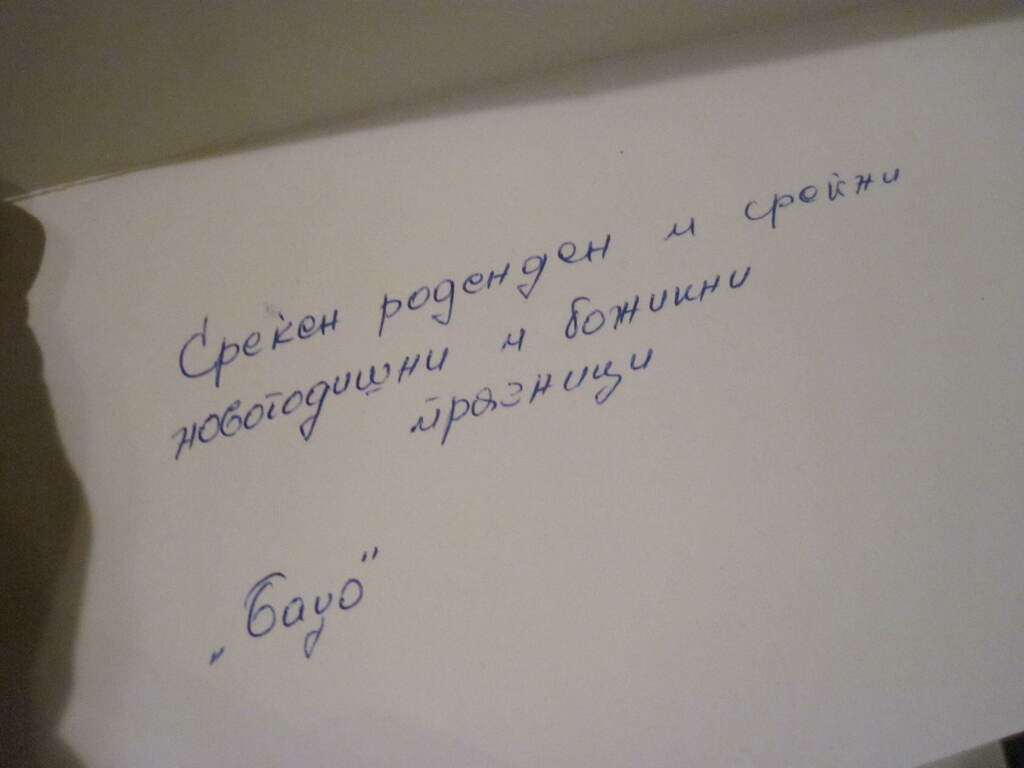 Среќен роденден и среќни
новогодишни и божиќни
празници
„Бауо“